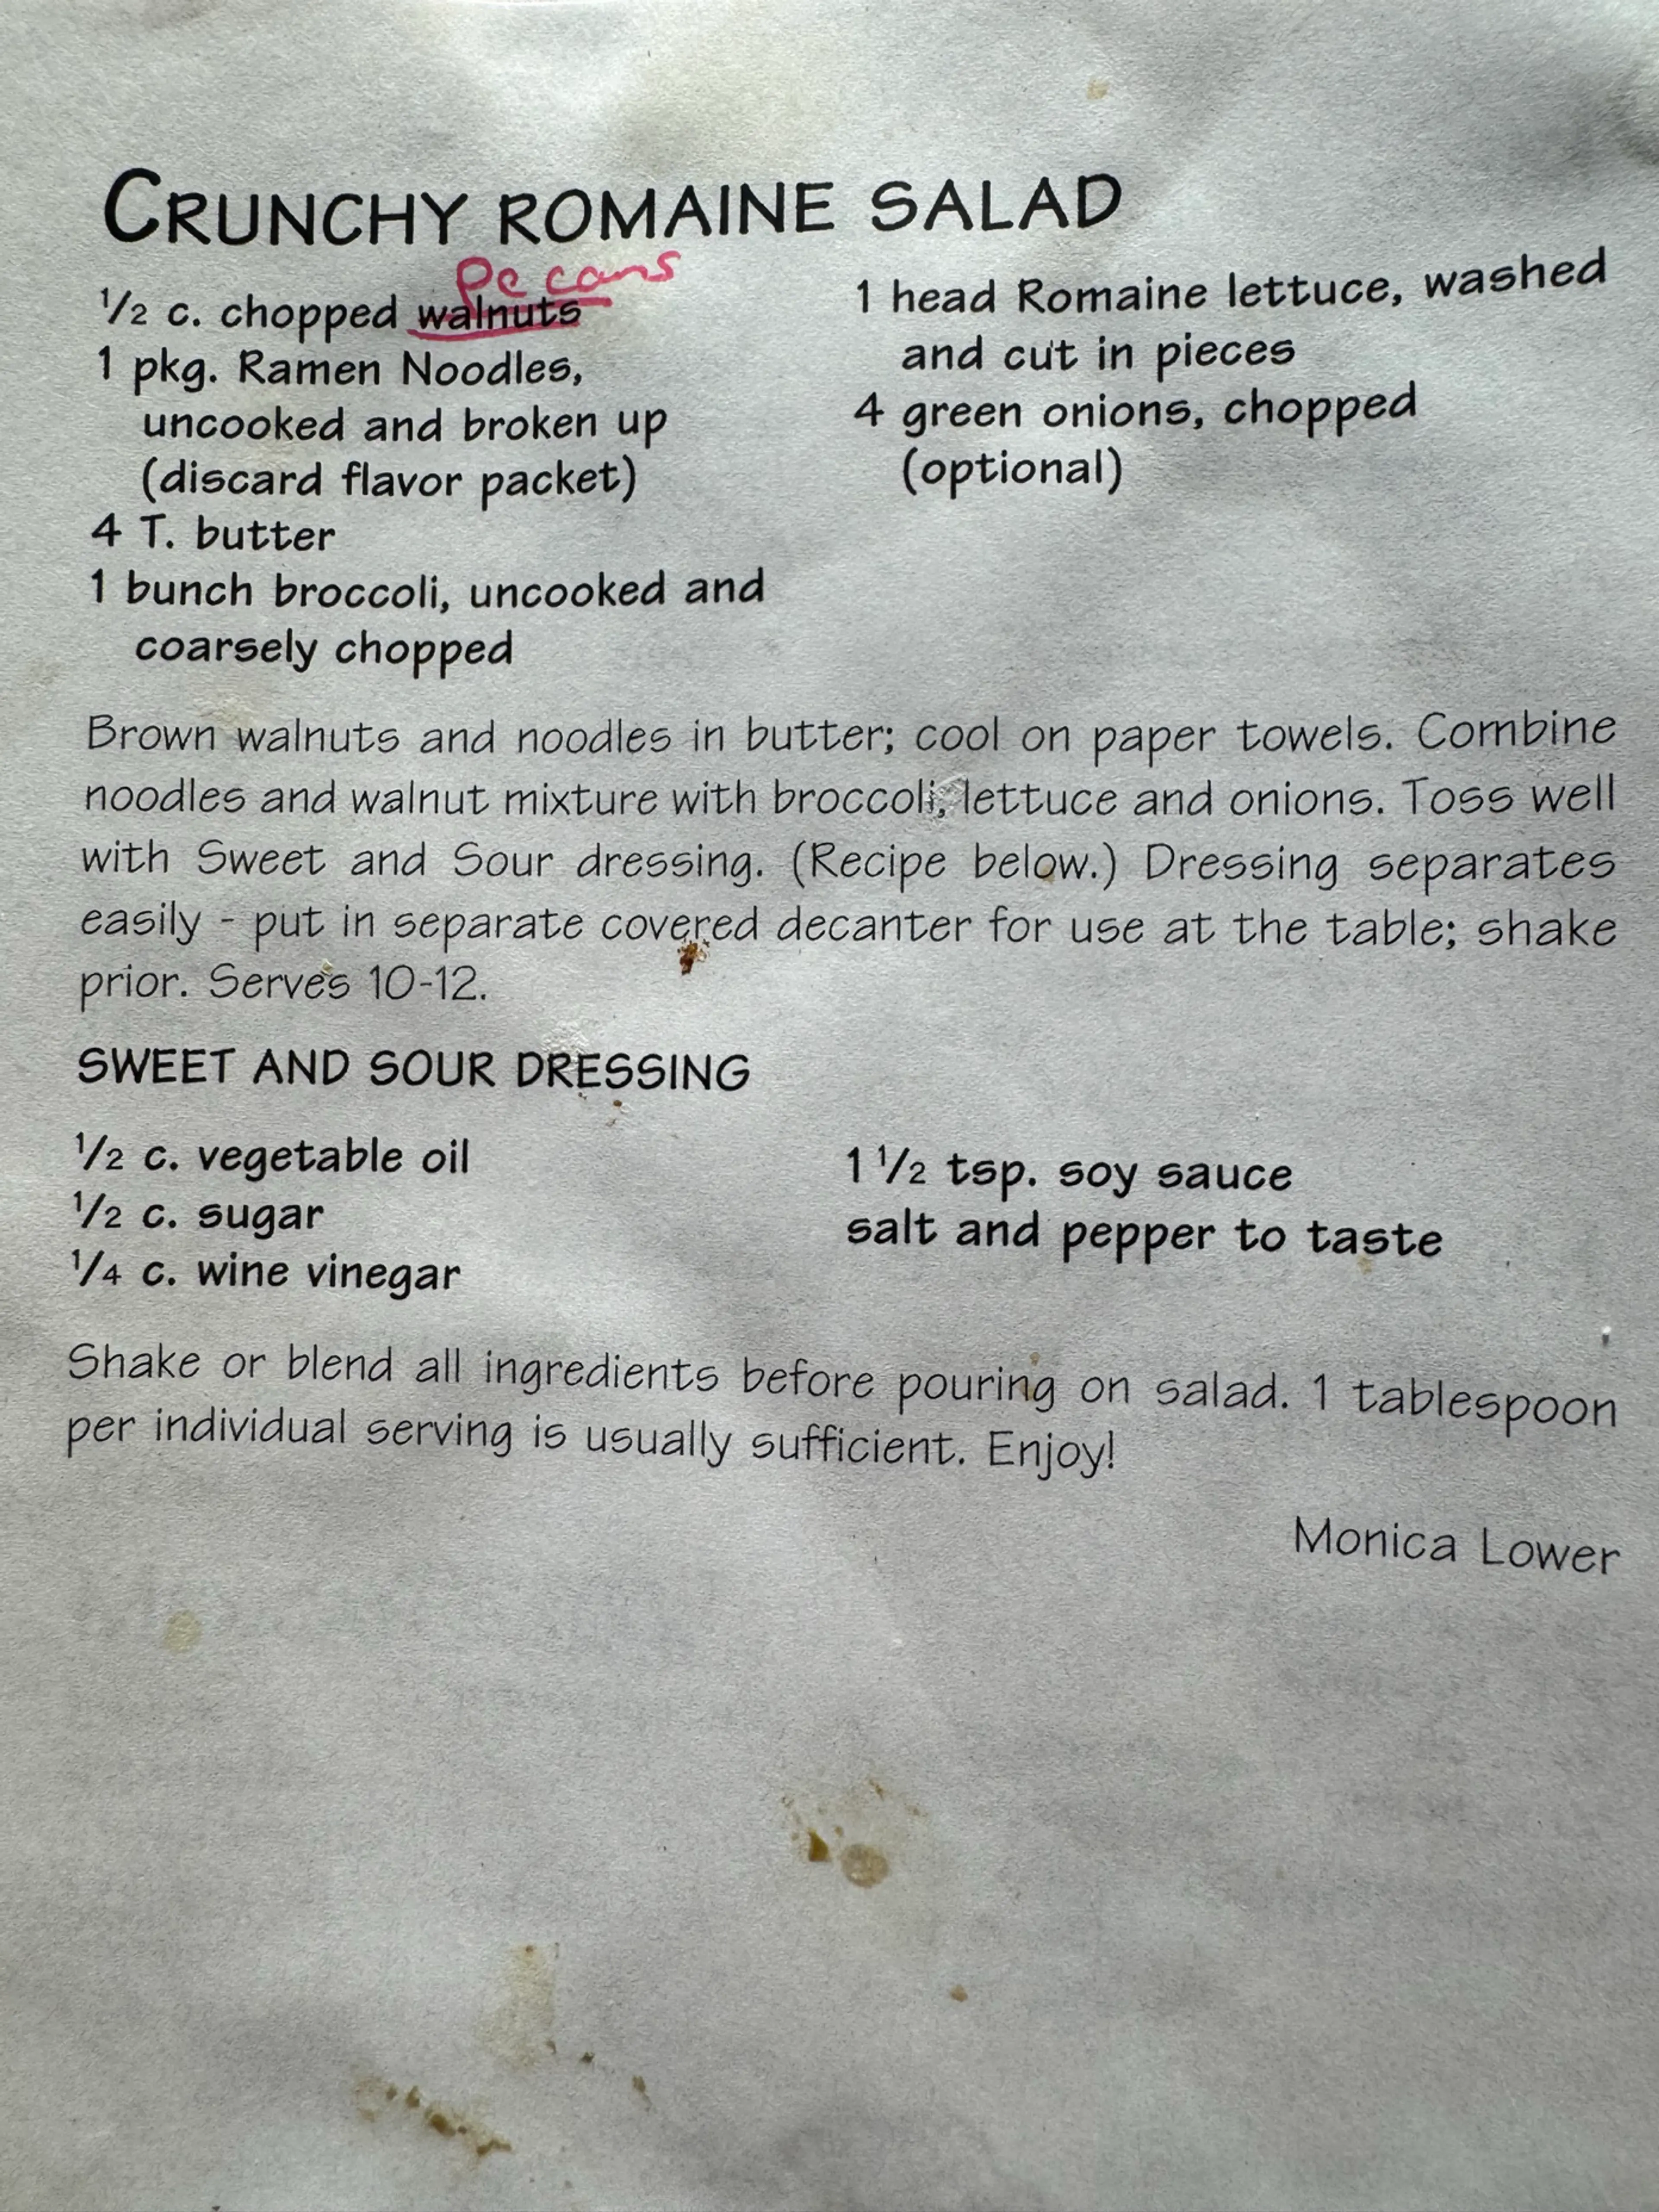 CRUNCHY ROMAINE SALAD
Pecans
1/2 c. chopped walnuts
1 pkg. Ramen Noodles,
uncooked and broken up
(discard flavor packet)
4 T. butter
1 bunch broccoli, uncooked and
coarsely chopped
1 head Romaine lettuce, washed
and cut in pieces
4 green onions, chopped
(optional)
Brown walnuts and noodles in butter; cool on paper towels. Combine
noodles and walnut mixture with broccoli, lettuce and onions. Toss well
with Sweet and Sour dressing. (Recipe below.) Dressing separates
easily - put in separate covered decanter for use at the table; shake
prior. Serves 10-12.
SWEET AND SOUR DRESSING
1/2 c. vegetable oil
1/2 c. sugar
1/4 c. wine vinegar
1 1/2 tsp. soy sauce
salt and pepper to taste
Shake or blend all ingredients before pouring on salad. 1 tablespoon
per individual serving is usually sufficient. Enjoy!
Monica Lower